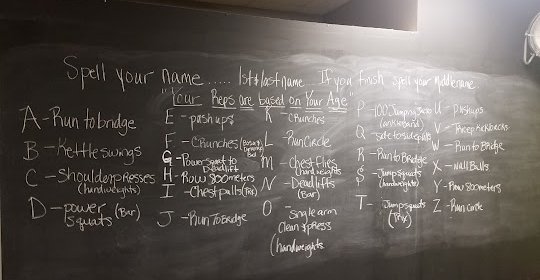 Spell your name..... 1st & last name. If you finish spell your middle name.
"Your Reps are based on Your Age"
A - Run to bridge
B - Kettle swings
C - Shoulder presses
(hand weights)
D - power (Bar)
squats
E - pushups
F - Crunches
G - Power squat to
Deadlift
H - Row 800 meters
I - Chest palls (TRX)
J - Run To Bridge
K - crunches
L - Run Circle
M - Chest flies
(hand weights)
N - Deadlifts
(Bar)
O - Single arm
Clean & press
(hand weights
P - 100 Jumping Jacks
Q - Side to side
R - Run to Bridge
S - Jump squats
(hand weights)
T - Jump squats
(TRX)
U - pushups
V - Tricep kickbacks
W - Run to Bridge
X - Wall Balls
Y - Row 800 meters
Z - Run Circle